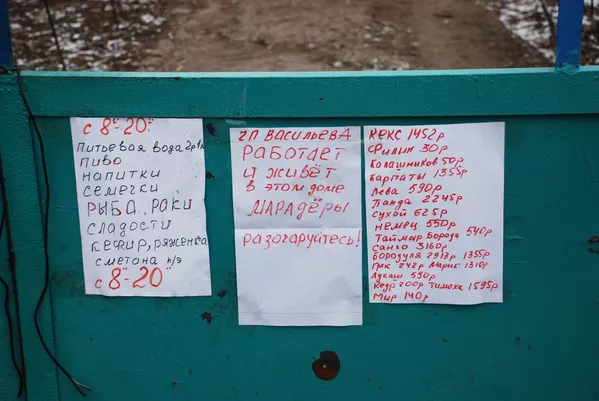 с 8⁰⁰-20⁰⁰
Питьевая вода
пиво
напитки
семечки
РЫБА, РАКИ
сладости
кефир, ряженка
сметана
с 8⁰⁰-20⁰⁰
ГП ВАСИЛЬЕВА
Работает
и живёт
в этом доме
МАРАДЁРЫ
разочаруйтесь!
Кекс 1452р
Филин 30р
Калашников 50р
Карпаты 1355р
Лева 590р
Панда 2245р
Сухой 625р
немец 550р
Таймыр Борода 540р
Санчо 3160р
Бородуля 2913р 1355р
242р Марик 1310р
Лукаш 590р
Кедр 200р Тимоха 1595р
Мир 140р